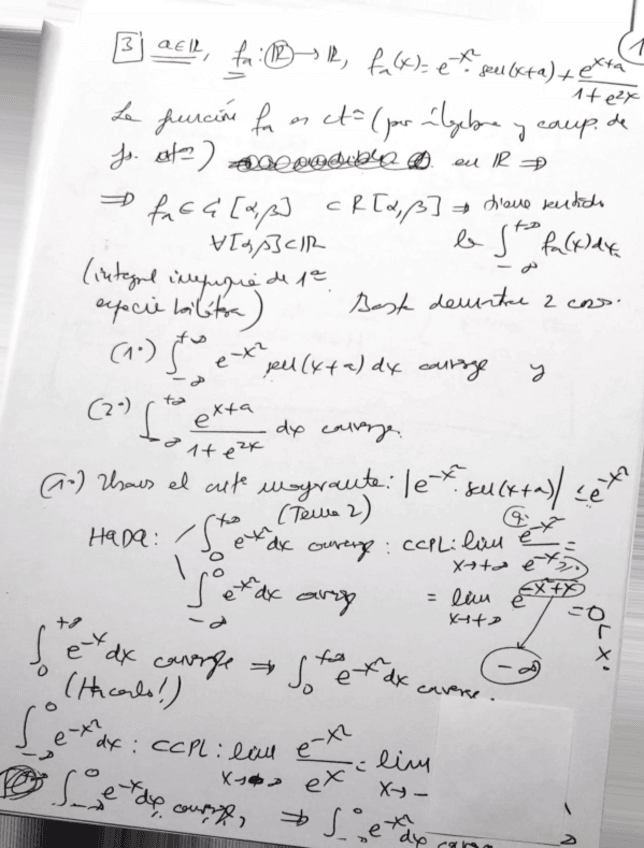 1
3 a∈ℝ, fa: ℝ → ℝ, fa(x) = e^{-x²}·sen(x+a) + e^{x+a}/(1+e^{2x})
La función fa es ct= (por álgebra y comp. de
fs. ct=) en ℝ ⇒
⇒ fa ∈ C[α,β] ⊂ R[α,β] ⇒ tiene sentido
∀[α,β]⊂ℝ la ∫_{-∞}^{+∞} fa(x)dx
(integral impropia de 1ª
especie bilátera) Basta demostrar 2 cosas.
(1º) ∫_{-∞}^{+∞} e^{-x²} sen(x+a) dx converge y
(2º) ∫_{-∞}^{+∞} e^{x+a}/(1+e^{2x}) dx converge.
(1º) Usamos el mayorante: |e^{-x²}·sen(x+a)| ≤ e^{-x²}
(Tema 2)
∫_0^{+∞} e^{-x²}dx converge: CCPL: lim_{x→+∞} e^{-x²}/e^{-x} =
∫_{-∞}^0 e^{-x²}dx converge = lim_{x→+∞} e^{-x²+x} = 0
-∞
∫_0^{+∞} e^{-x}dx converge ⇒ ∫_0^{+∞} e^{-x²}dx converge.
(Hacerlo!)
∫_{-∞}^0 e^{-x²}dx: CCPL: lim e^{-x²}/e^x = lim
x→-
∫_{-∞}^0 dx converge, ⇒ ∫_{-∞}^0 e^{-x²}dx